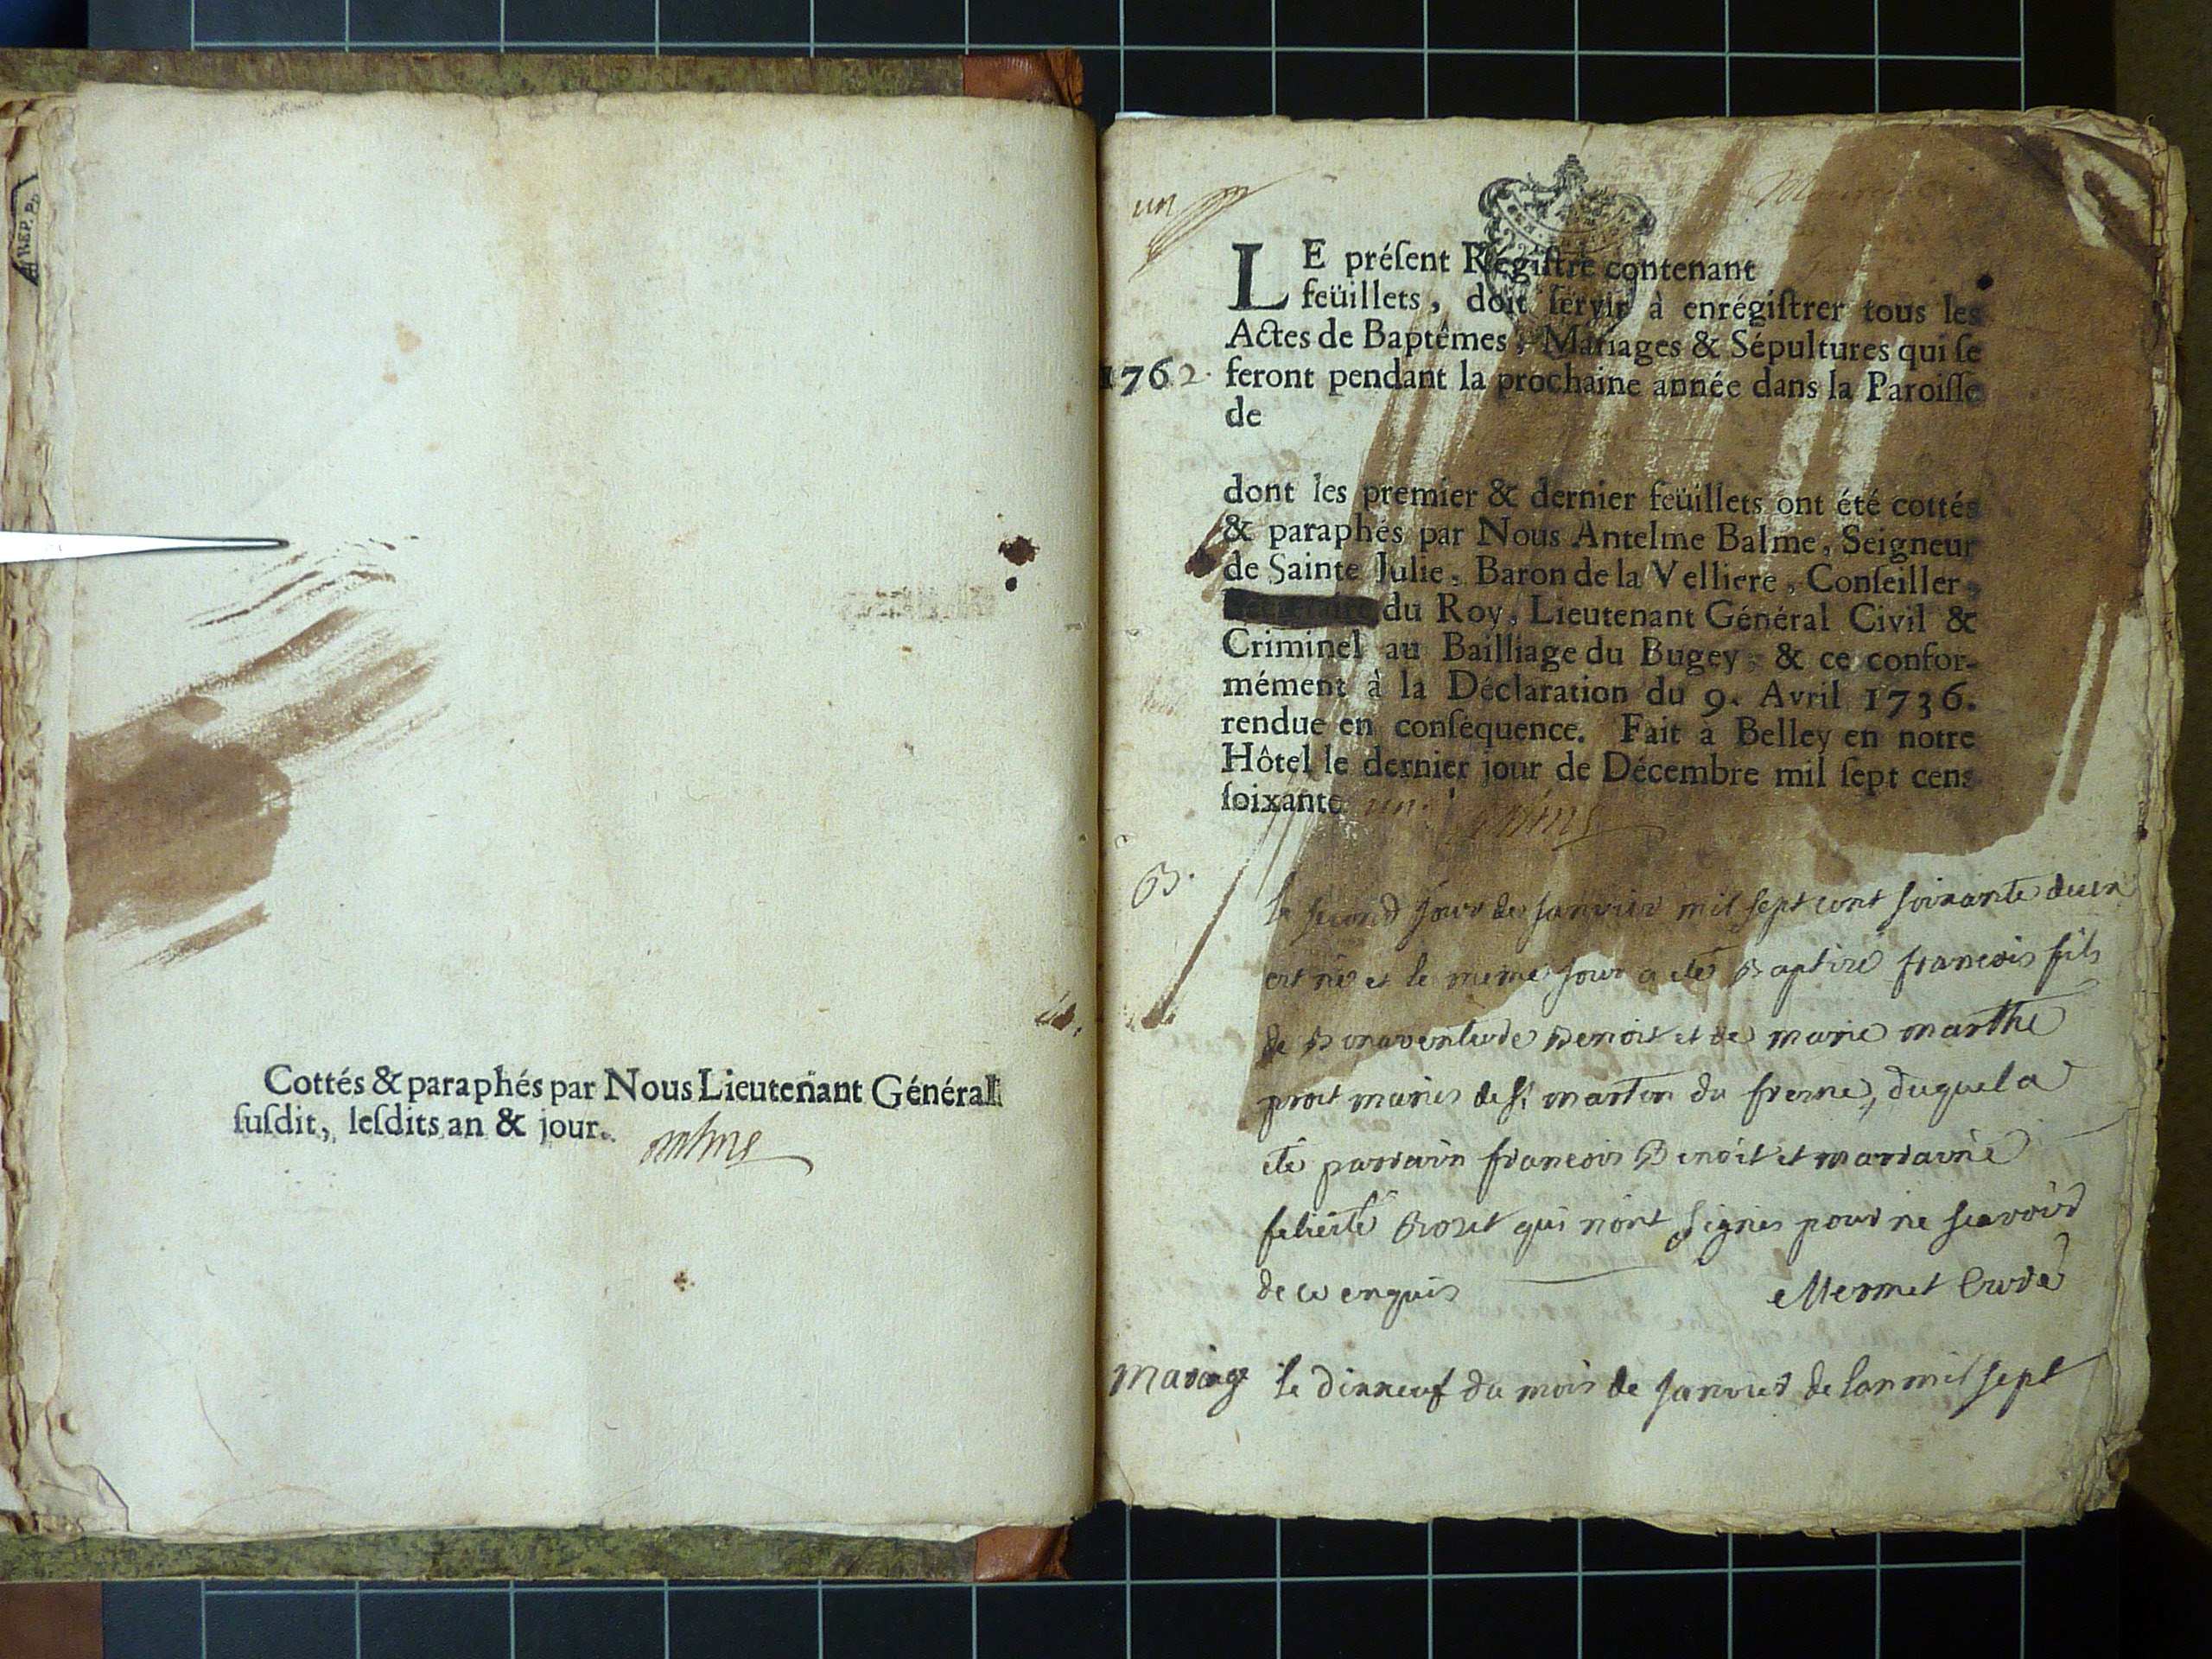 Cottés & paraphés par Nous Lieutenant Général
ſuſdit, leſdits an & jour.
un
LE préſent Régiſtre contenant
feüillets, doit ſervir à enrégiſtrer tous les
Actes de Baptêmes, Mariages & Sépultures qui ſe
1762. feront pendant la prochaine année dans la Paroiſſe
de
dont les premier & dernier feüillets ont été cottés
& paraphés par Nous Antelme Balme, Seigneur
de Sainte Julie, Baron de la Velliere, Conſeiller,
du Roy, Lieutenant Général Civil &
Criminel au Bailliage du Bugey, & ce confor-
mément à la Déclaration du 9. Avril 1736.
rendue en conſéquence. Fait à Belley en notre
Hôtel le dernier jour de Décembre mil ſept cens
ſoixante un.
B.
le second jour de janvier mil sept cent soixante deux
est né et le meme jour a eté Baptisé francois fils
de Bonaventure Benoit et de marie marthe
prost mariés de st martin du fresne, duquel a
eté parrain francois Benoit et marraine
felicité qui n'ont signés pour ne scavoir
de ce enquis Mermet Curé
mariage le dixneuf du mois de janvier de lan mil sept